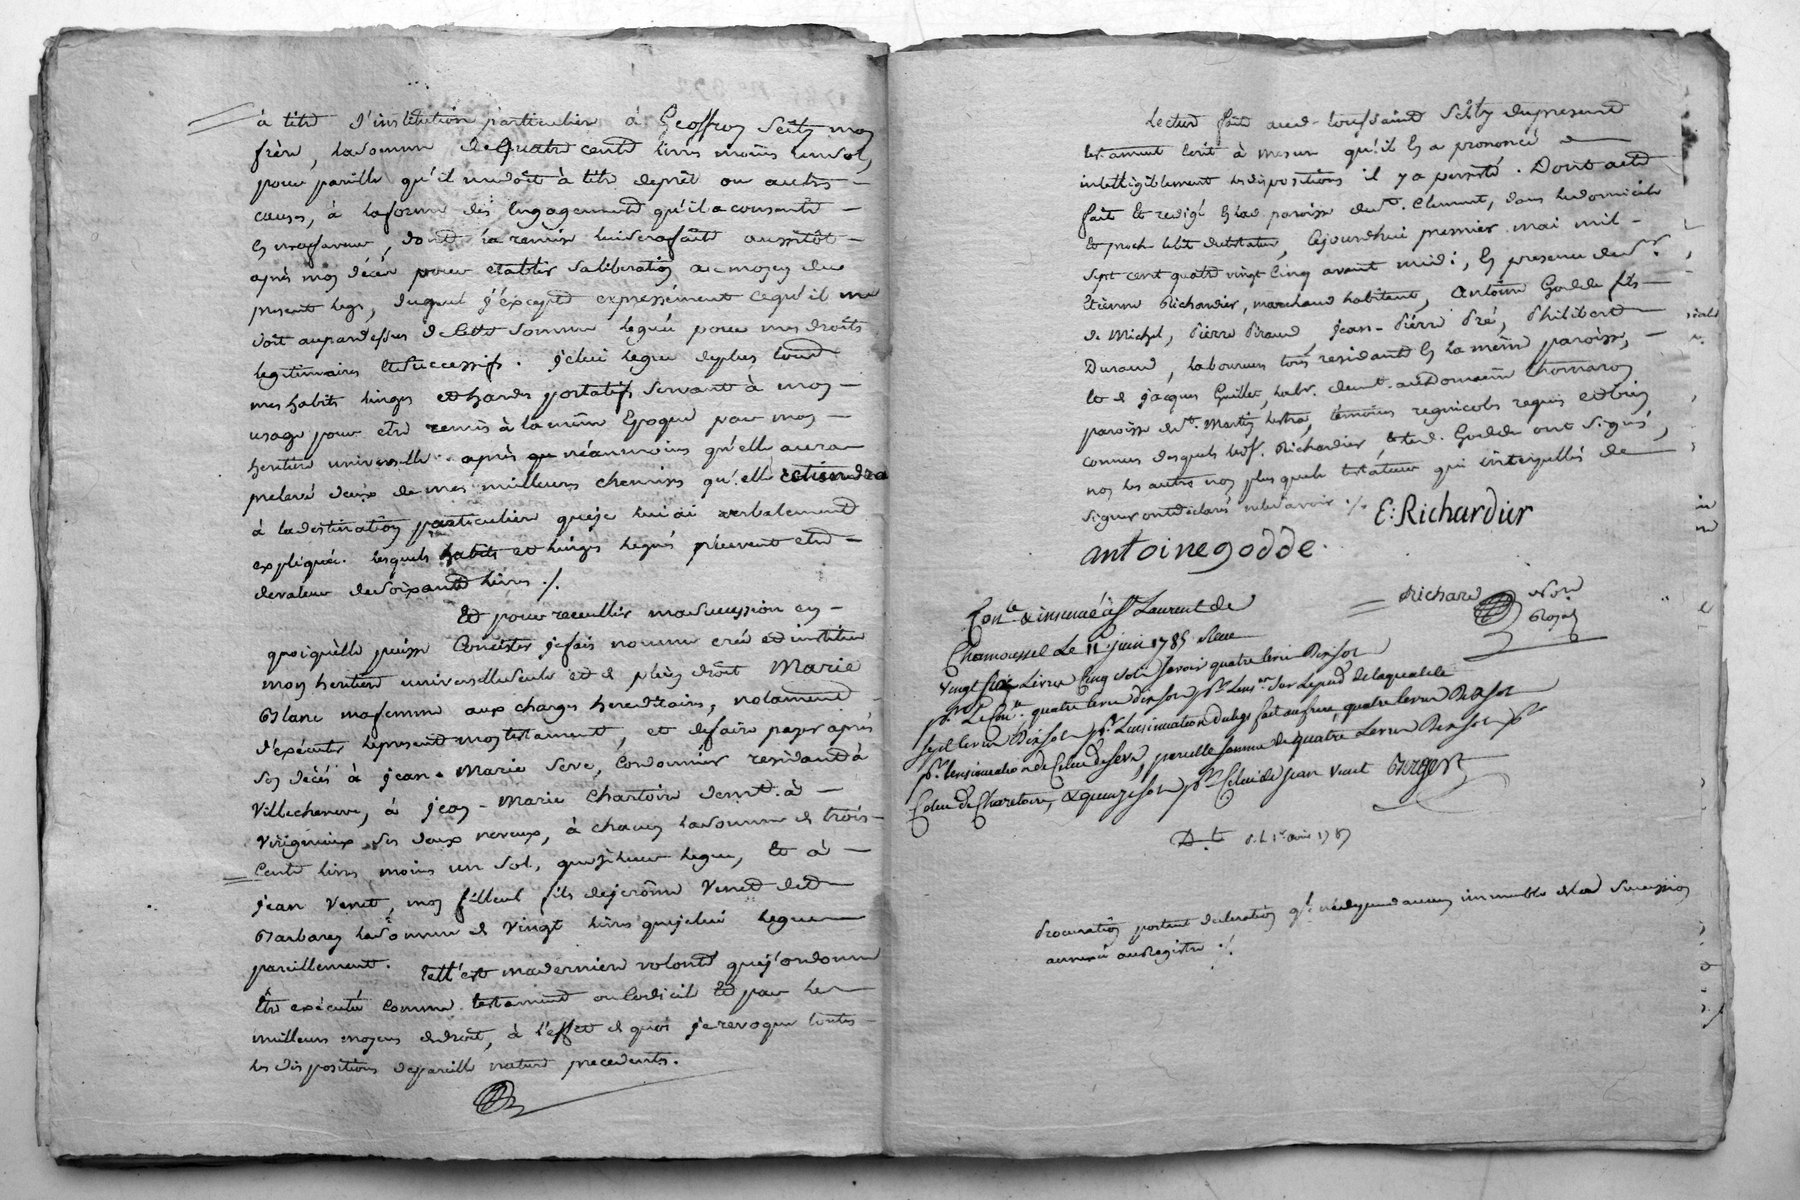 à titre d'institution particuliere à Geoffroy Seïty mon
frère, la somme de quatre cents livres moins un sol,
pour pareille qu'il me doit à titre de prêt ou autres
causes, à la forme des engagements qu'il a consenti
en ma faveur, dont la remise lui sera faite aussitôt
après mon décès pour etablir sa liberation au moyen du
present legs, duquel j'excepte expressément ce qu'il me
doit au par dessus de cette somme leguée pour mes droits
legitimaires et successifs. je lui legue de plus tous
mes habits linges et hardes portatifs servant à mon
usage pour etre remis à la même Epoque par mon
heritiere universelle après que néanmoins qu'elle aura
prelevé deux de mes meilleures chemises qu'elle retiendra
à la destination particuliere que je lui ai verbalement
expliquée. lesquels habits et linges legués peuvent etre
de valeur de soixante livres ./.
Et pour recueillir ma succession en
quoi qu'elle puisse Consister je fais nomme créé et institue
mon heritiere universelle seule et de plein droit Marie
Blanc ma femme aux charges hereditaires, notamment
d'exécuter le present mon testament, et de faire payer après
ses décès à jean-Marie Serve, Cordonnier residant à
Villechenève, à jean-Marie Chartoire demt. à
Virigneux ses deux neveux, à chacun la somme de trois
Cents livres moins un sol, que je leur legue, Et à
jean Venet, mon filleul fils de jerôme Venet de St
Barbaren la somme de vingt livres que je lui legue
pareillement. telle est ma derniere volonté que j'ordonne
Etre exécutée comme testament ou Codicile Et par les
meilleurs moyens de droit, à l'effet de quoi je revoque toutes
les dispositions de pareille nature precedentes.
Lecture faite aud. toussaint Seïty du present
testament Ecrit à mesure qu'il l'a prononcé
intelligiblement ses dispositions il y a persisté. Dont acte
fait et redigé En lad. paroisse de st. Clement, dans le domicile
et proche le lit du testateur, Cejourdhui premier mai mil
sept cent quatre vingt Cinq avant midi, En presence de sr.
Etienne Richardier, marchand habitant, Antoine Godde fils
de Michel, Pierre Piraud, jean-Pierre Pré, Philibert
Durand, laboureurs tous residants En la même paroisse,
Et de jacques Guillet, labr. demt. au Domaine thomaron
paroisse de st. Martin lestra, témoins regnicoles requis et bien
connus desquels led. sr. Richardier, et led. Godde ont signé,
non les autres non plus que le testateur qui interpellés de
signer ont déclaré ne le savoir ./. E: Richardier
antoine godde.
Richard Nore
Royal
Conlé & insinué à St Laurent de
Chamousset Le 11 juin 1785 Reçu
vingt six Livres Cinq sols savoir quatre livres Dix sols
pr. Le Conle. quatre livres dix sols pr. Linson. Sur Le pied de la qualité
sept livres Dix sols pr. Linsinuation du legs fait au frere quatre livres Dix sols
pr. Linsinuation de Celui de Serve, pareille somme de quatre Livres Dix sols pr.
Celui de Charetoire, & quinze sols pr. Celui de Jean Venet
D. le 1er. avril 1787
Procuration portant declaration ql. ne depend aucun immeuble de lad succession
annexée au Registre ./.